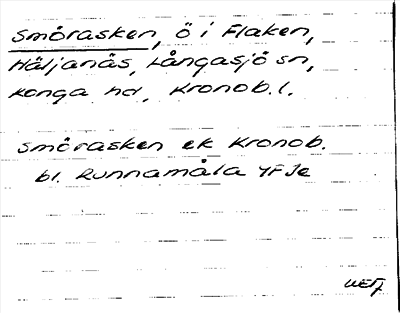 Smörasken, ö i Flaken,
Häljanäs, Långasjö sn,
Konga hd, Kronob. l.
Smörasken ek Kronob.
bl. Runnamåla 4F Je